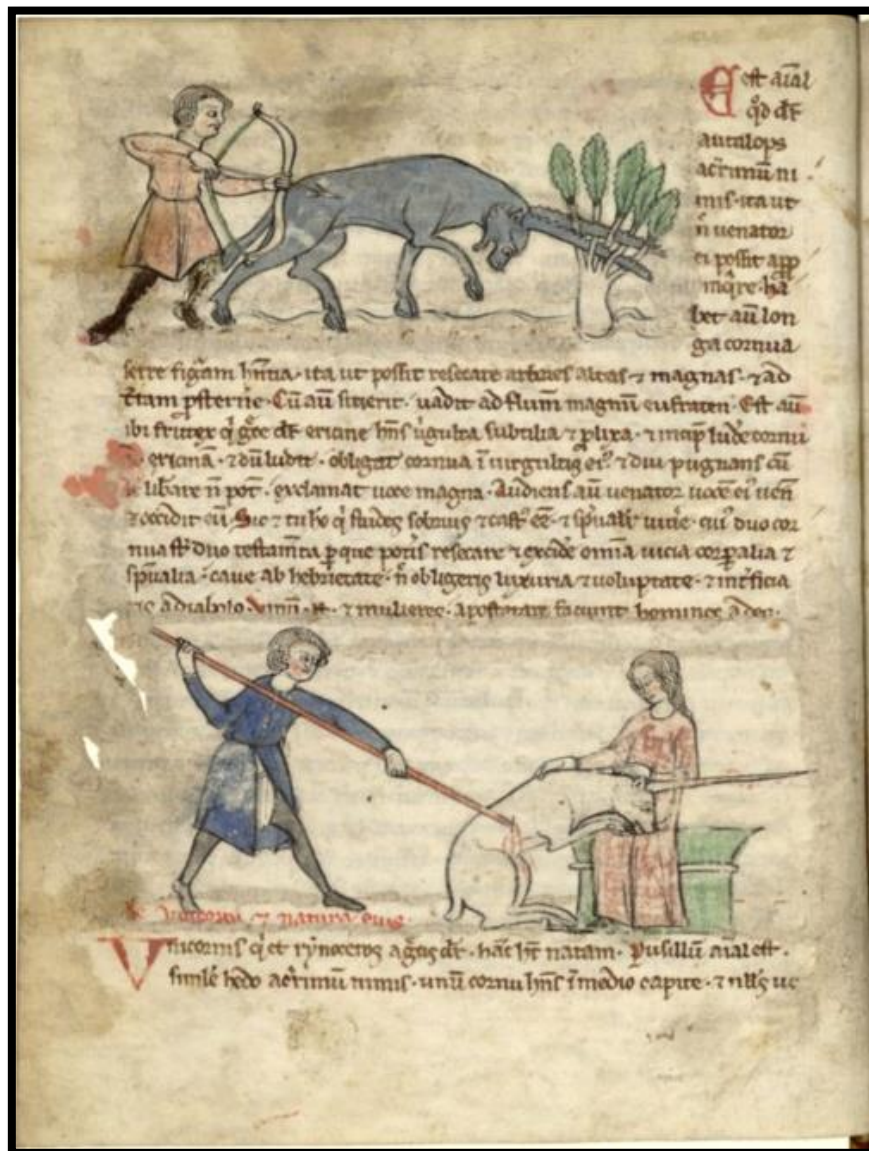 Est aīal
q̄d dr̄
autalops
acrimū ni
mis · ita ut
n̄ venator
ei possit app
inq̄re · ha
bet aū lon
ga cornua
serre figām hn̄tia · ita ut possit resecare arbores altas ⁊ magnas · ⁊ ad
t̄ram p̄sternē · Cū aū sitierit · uadit ad flum̄ magnū eufraten · Est aū
ibi frutex q̄ grc̄e dr̄ ericine hn̄s ūgulta subtilia ⁊ plixa · ⁊ incip̄ ludē cornu
ericinā · ⁊ dū ludit · obligat cornua ī uirgultis ei᷒ ⁊ diu pugnans cū
se lib̄are n̄ pot̄ · exclamat uoce magna · Audiens aū uenator uocē ei᷒ uen̄
⁊ occidit eū Sic ⁊ tu ho q̄ studes sobrius ⁊ cast᷒ eē · ⁊ sp̄uali uiuē · cui᷒ duo cor
nua st̄ duo testam̄ta p que pot̄is resecare ⁊ excidē om̄ia uicia corp̄alia ⁊
sp̄ualia · caue ab hebrietate · n̄ obligeris luxuria ⁊ uoluptate · ⁊ int̄ficia
ris a diabolo Vinū · ⁊ mulieres · apostatare faciunt homines a deo ·
de unicornu ⁊ natura eius
Vnicornis q̄ et rynoceros a grc̄is dr̄ · hāc ht̄ naturam · Pusillū aīal est ·
simile hedo acrimū nimis · unū cornu hn̄s ī medio capite · ⁊ null᷒ ue